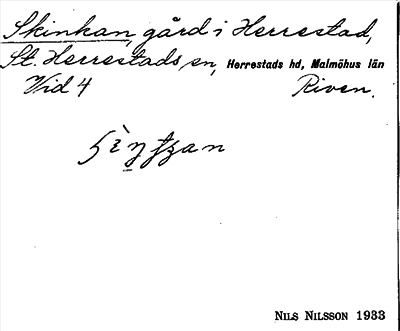 Skinkan, gård i Herrestad,
St. Herrestads sn, Herrestads hd, Malmöhus län
Vid 4 Riven.
NILS NILSSON 1933